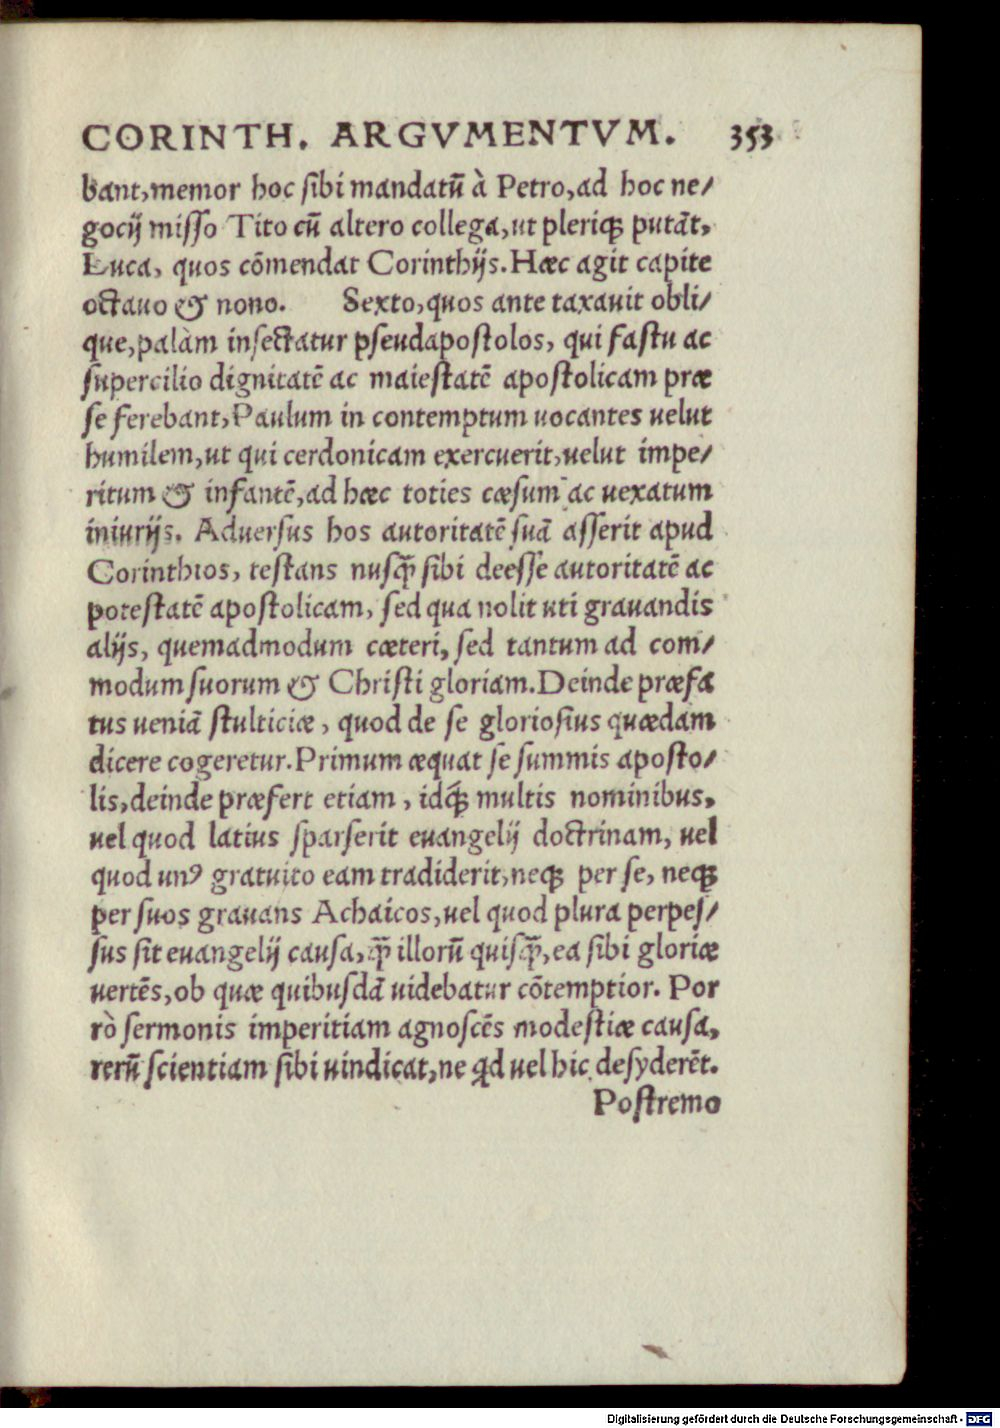 CORINTH. ARGVMENTVM. 353
bant, memor hoc sibi mandatū à Petro, ad hoc ne/
gocij misso Tito cū altero collega, ut pleriqꝫ putāt,
Luca, quos cōmendat Corinthijs. Hæc agit capite
octauo & nono. Sexto, quos ante taxauit obli/
que, palàm insectatur pseudapostolos, qui fastu ac
supercilio dignitatē ac maiestatē apostolicam præ
se ferebant, Paulum in contemptum uocantes uelut
humilem, ut qui cerdonicam exercuerit, uelut impe/
ritum & infantē, ad hæc toties cæsum ac uexatum
iniurijs. Aduersus hos autoritatē suā asserit apud
Corinthios, testans nusq̄ sibi deesse autoritatē ac
potestatē apostolicam, sed qua nolit uti grauandis
alijs, quemadmodum cæteri, sed tantum ad com/
modum suorum & Christi gloriam. Deinde præfa
tus ueniā stulticiæ, quod de se gloriosius quædam
dicere cogeretur. Primum æquat se summis aposto/
lis, deinde præfert etiam, idq́ꝫ multis nominibus,
uel quod latius sparserit euangelij doctrinam, uel
quod unꝰ gratuito eam tradiderit, neqꝫ per se, neqꝫ
per suos grauans Achaicos, uel quod plura perpes/
sus sit euangelij causa, q̄ illorū quisq̄, ea sibi gloriæ
uertēs, ob quæ quibusdā uidebatur cōtemptior. Por
rò sermonis imperitiam agnoscēs modestiæ causa,
rerū scientiam sibi uindicat, ne qd uel hic desyderēt.
Postremo
Digitalisierung gefördert durch die Deutsche Forschungsgemeinschaft - DFG